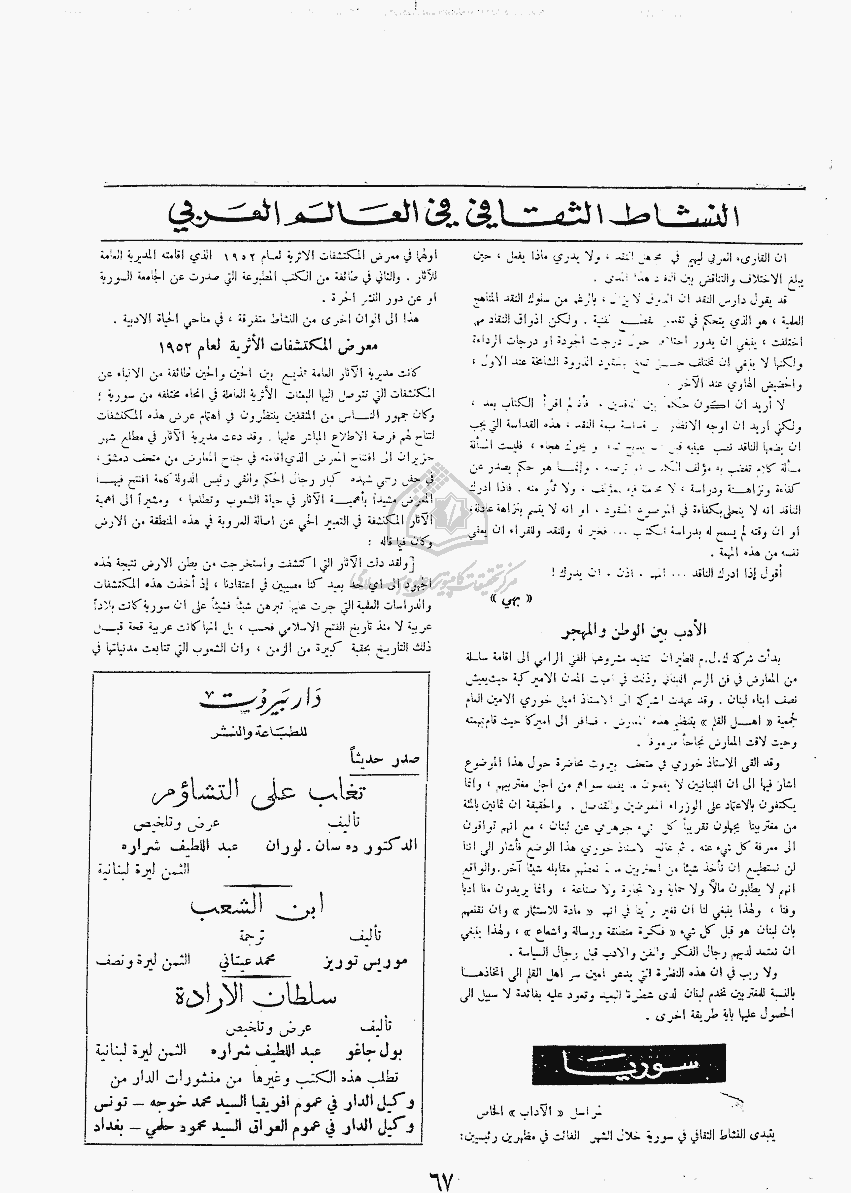 النشاط الثقافي في العالم العربي
ان القارىء العربي ليهيم في مجاهل النقد ، ولا يدري ماذا يفعل ، حين
يبلغ الاختلاف والتناقض بين النقاد هذا المدى .
قد يقول دارس النقد ان الذوق لا يزال ، بالرغم من سلوك النقد المناهج
العلمية ، هو الذي يتحكم في تقدير القضايا الفنية . ولكن اذواق النقاد مهما
اختلفت ، ينبغي ان يدور اختلافها حول درجات الجودة او درجات الرداءة
ولكنها لا ينبغي ان تختلف حتى تبلغ بالمنقود الذروة الشامخة عند الاول ،
والحضيض الهاوي عند الآخر .
لا أريد ان اكون حكماً بين الناقدين . فأنا لم اقرأ الكتاب بعد ،
ولكني أريد ان اوجه الانظار الى قداسة مهمة النقد ، هذه القداسة التي يجب
ان يضعها الناقد نصب عينيه قبل ان يديج ثناء او يحوك هجاء . فليست المسألة
مسألة كلام تغضب به مؤلف الكتاب او ترضيه . وإنما هو حكم يصدر عن
كفاءة ونزاهة ودراسة ، لا محاباة فيه لمؤلف . ولا تأثر منه . فاذا ادرك
الناقد انه لا يتحلى بكفاءة في الموضوع المنقود . او انه لا يتسم بنزاهة عادلة.
او ان وقته لم يسمح له بدراسة الكتاب ... فخير له وللنقد وللقراء ان يعفي
نفسه من هذه المهمة .
أقول إذا ادرك الناقد ... افهم . اذن . ان يدرك !
« بهي »
الأدب بين الوطن والمهجر
بدأت شركة ك.ل.م للطيران تنفيذ مشروعها الفني الرامي الى اقامة سلسلة
من المعارض في فن الرسم اللبناني وذلك في امهات المدن الاميركية حيث يعيش
نصف ابناء لبنان . وقد عهدت الشركة الى الاستاذ اميل خوري الامين العام
لجمعية « اهل القلم » بتنظيم هذه المعارض . فسافر الى اميركا حيث قام بمهمته
وحيث لاقت المعارض نجاحاً مرموقاً .
وقد القى الاستاذ خوري في متحف بيروت محاضرة حول هذا الموضوع
اشار فيها الى ان اللبنانيين لا يقومون بما يفعله سواهم من اجل مغتربيهم ، وانما
يكتفون بالاعتماد على الوزراء المفوضين والقناصل . والحقيقة ان ثمانين بالمئة
من مغتربينا يجهلون تقريباً كل شيء جوهري عن لبنان ، مع انهم تواقون
الى معرفة كل شيء عنه . ثم عالج الاستاذ خوري هذا الوضع فأشار الى اننا
لن نستطيع ان نأخذ شيئاً من المغتربين ما لم نعطهم مقابله شيئاً آخر.والواقع
انهم لا يطلبون مالاً ولا حماية ولا تجارة ولا صناعة ، وانما يريدون منا ادباً
وفناً ، ولهذا ينبغي لنا ان نغير رأينا في انهم « مادة للاستثمار » وان نقنعهم
بان لبنان هو قبل كل شيء « فكرة منطلقة ورسالة واشعاع » ، ولهذا ينبغي
ان نعتمد لديهم رجال الفكر والفن والادب قبل رجال السياسة .
ولا ريب في ان هذه النظرة التي يدعو امين سر اهل القلم الى اتخاذها
بالنسبة للمغتربين تخدم لبنان لدى شطره البعيد وتعود عليه بفائدة لا سبيل الى
الحصول عليها باية طريقة اخرى .
سوريا
لمراسل « الآداب » الخاص
يتبدى النشاط الثقافي في سورية خلال الشهر الفائت في مظهرين رئيسيين:
اولهما في معرض المكتشفات الاثرية لعام ١٩٥٢ الذي اقامته المديرية العامة
للآثار . والثاني في طائفة من الكتب المطبوعة التي صدرت عن الجامعة السورية
او عن دور النشر الحرة .
هذا الى الوان اخرى من النشاط متفرقة ، في مناحي الحياة الادبية .
معرض المكتشفات الأثرية لعام ١٩٥٢
كانت مديرية الآثار العامة تذيع بين الحين والحين طائفة من الانباء عن
المكتشفات التي تتوصل اليها البعثات الأثرية العاملة في انحاء مختلفة من سورية ؛
وكان جمهور الناس من المثقفين ينتظرون في اهتمام عرض هذه المكتشفات
لتتاح لهم فرصة الاطلاع المباشر عليها . وقد دعت مديرية الآثار في مطلع شهر
حزيران الى افتتاح المعرض الذي اقامته في جناح المعارض من متحف دمشق،
في حفل رسمي شهده كبار رجال الحكم والقى رئيس الدولة كلمة افتتح فيها
المعرض مشيداً بأهمية الآثار في حياة الشعوب وتطلعها ، ومشيراً الى اهمية
الآثار المكتشفة في التعبير الحي عن اصالة العروبة في هذه المنطقة من الارض
وكان فيما قاله :
[ولقد دلت الآثار التي اكتشفت واستخرجت من بطن الارض نتيجة لهذه
الجهود الى أي حد بعيد كنا مصيبين في اعتقادنا ، إذ أخذت هذه المكتشفات
والدراسات العلمية التي جرت عليها تبرهن شيئاً فشيئاً على ان سورية كانت بلاداً
عربية لا منذ تاريخ الفتح الاسلامي فحسب ، بل انها كانت عربية قحة قبل
ذلك التاريخ بحقبة كبيرة من الزمن ، وان الشعوب التي تتابعت مدنياتها في
دار بيروت
للطباعة والنشر
صدر حديثاً
تغلب على التشاؤم
تأليف عرض وتلخيص
الدكتور ده سان . لوران عبد اللطيف شراره
الثمن ليرة لبنانية
ابن الشعب
تأليف ترجمة
موريس توريز محمد عيتاني الثمن ليرة ونصف
سلطان الارادة
تأليف عرض وتلخيص
بول جاغو عبد اللطيف شراره الثمن ليرة لبنانية
تطلب هذه الكتب وغيرها من منشورات الدار من
وكيل الدار في عموم افريقيا السيد محمد خوجه – تونس
وكيل الدار في عموم العراق السيد محمود حلمي – بغداد
٦٧